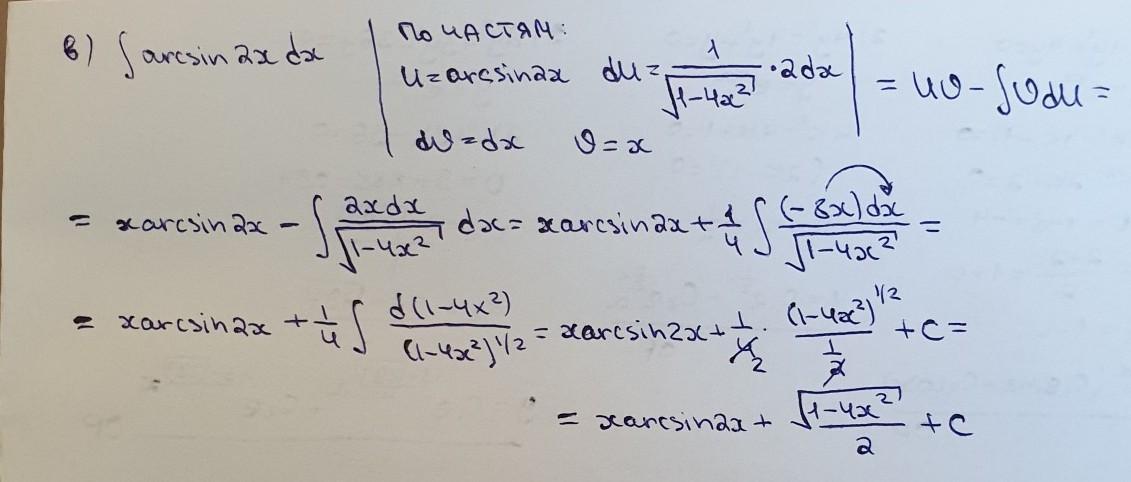 в) ∫ arcsin 2x dx | По частям: u = arcsin2x du = 1/√(1-4x²) · 2dx dv = dx v = x | = uv - ∫ v du =
= x arcsin 2x - ∫ 2x dx/√(1-4x²) dx = x arcsin 2x + 1/4 ∫ (-8x) dx/√(1-4x²) =
= x arcsin 2x + 1/4 ∫ d(1-4x²)/(1-4x²)^1/2 = x arcsin 2x + 1/4 2 · (1-4x²)^1/2/(1/2) + C =
= x arcsin 2x + √(1-4x²)/2 + C